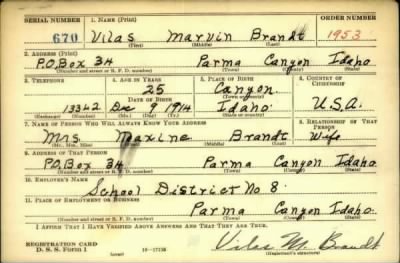 SERIAL NUMBER 1. NAME (Print) ORDER NUMBER
670 Vilas Marvin Brandt 1953
(First) (Middle) (Last)
2. ADDRESS (Print)
P.O. Box 34 Parma Canyon Idaho
(Number and street or R. F. D. number) (Town) (County) (State)
3. TELEPHONE 4. AGE IN YEARS 5. PLACE OF BIRTH 6. COUNTRY OF CITIZENSHIP
25 Canyon
DATE OF BIRTH (Town or county)
133J2 Dec 9 1914 Idaho U.S.A.
(Exchange) (Number) (Mo.) (Day) (Yr.) (State or country)
7. NAME OF PERSON WHO WILL ALWAYS KNOW YOUR ADDRESS 8. RELATIONSHIP OF THAT PERSON
Mrs. Maxine Brandt Wife
(Mr., Mrs., Miss) (First) (Middle) (Last)
9. ADDRESS OF THAT PERSON
P.O. Box 34 Parma Canyon Idaho
(Number and street or R. F. D. number) (Town) (County) (State)
10. EMPLOYER'S NAME
School District No 8.
11. PLACE OF EMPLOYMENT OR BUSINESS
Parma Canyon Idaho
(Number and street or R. F. D. number) (Town) (County) (State)
I AFFIRM THAT I HAVE VERIFIED ABOVE ANSWERS AND THAT THEY ARE TRUE.
REGISTRATION CARD
D. S. S. Form 1 16—17138 Vilas M. Brandt
(over) (Registrant's signature)